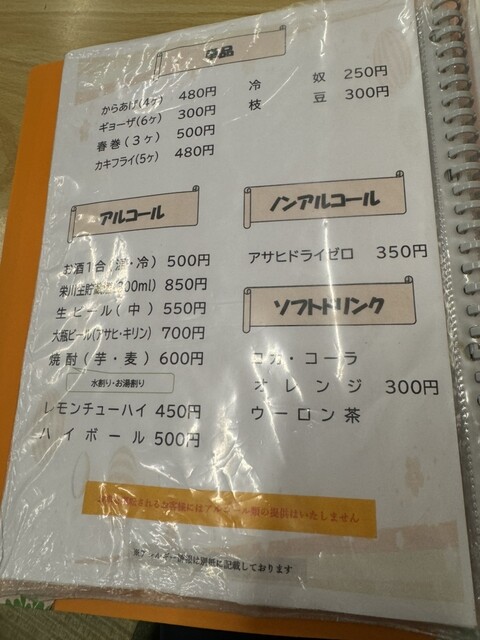 単品
からあげ(4ヶ) 480円
ギョーザ(6ヶ) 300円
春巻(3ヶ) 500円
カキフライ(5ヶ) 480円
冷奴 250円
枝豆 300円
アルコール
お酒1合(燗・冷) 500円
栄川生貯蔵酒(300ml) 850円
生ビール(中) 550円
大瓶ビール(アサヒ・キリン) 700円
焼酎(芋・麦) 600円
水割り・お湯割り
レモンチューハイ 450円
ハイボール 500円
ノンアルコール
アサヒドライゼロ 350円
ソフトドリンク
コカ・コーラ
オレンジ 300円
ウーロン茶
されるお客様にはアルコール類の提供はいたしません
※アレルギー情報は別紙に記載しております